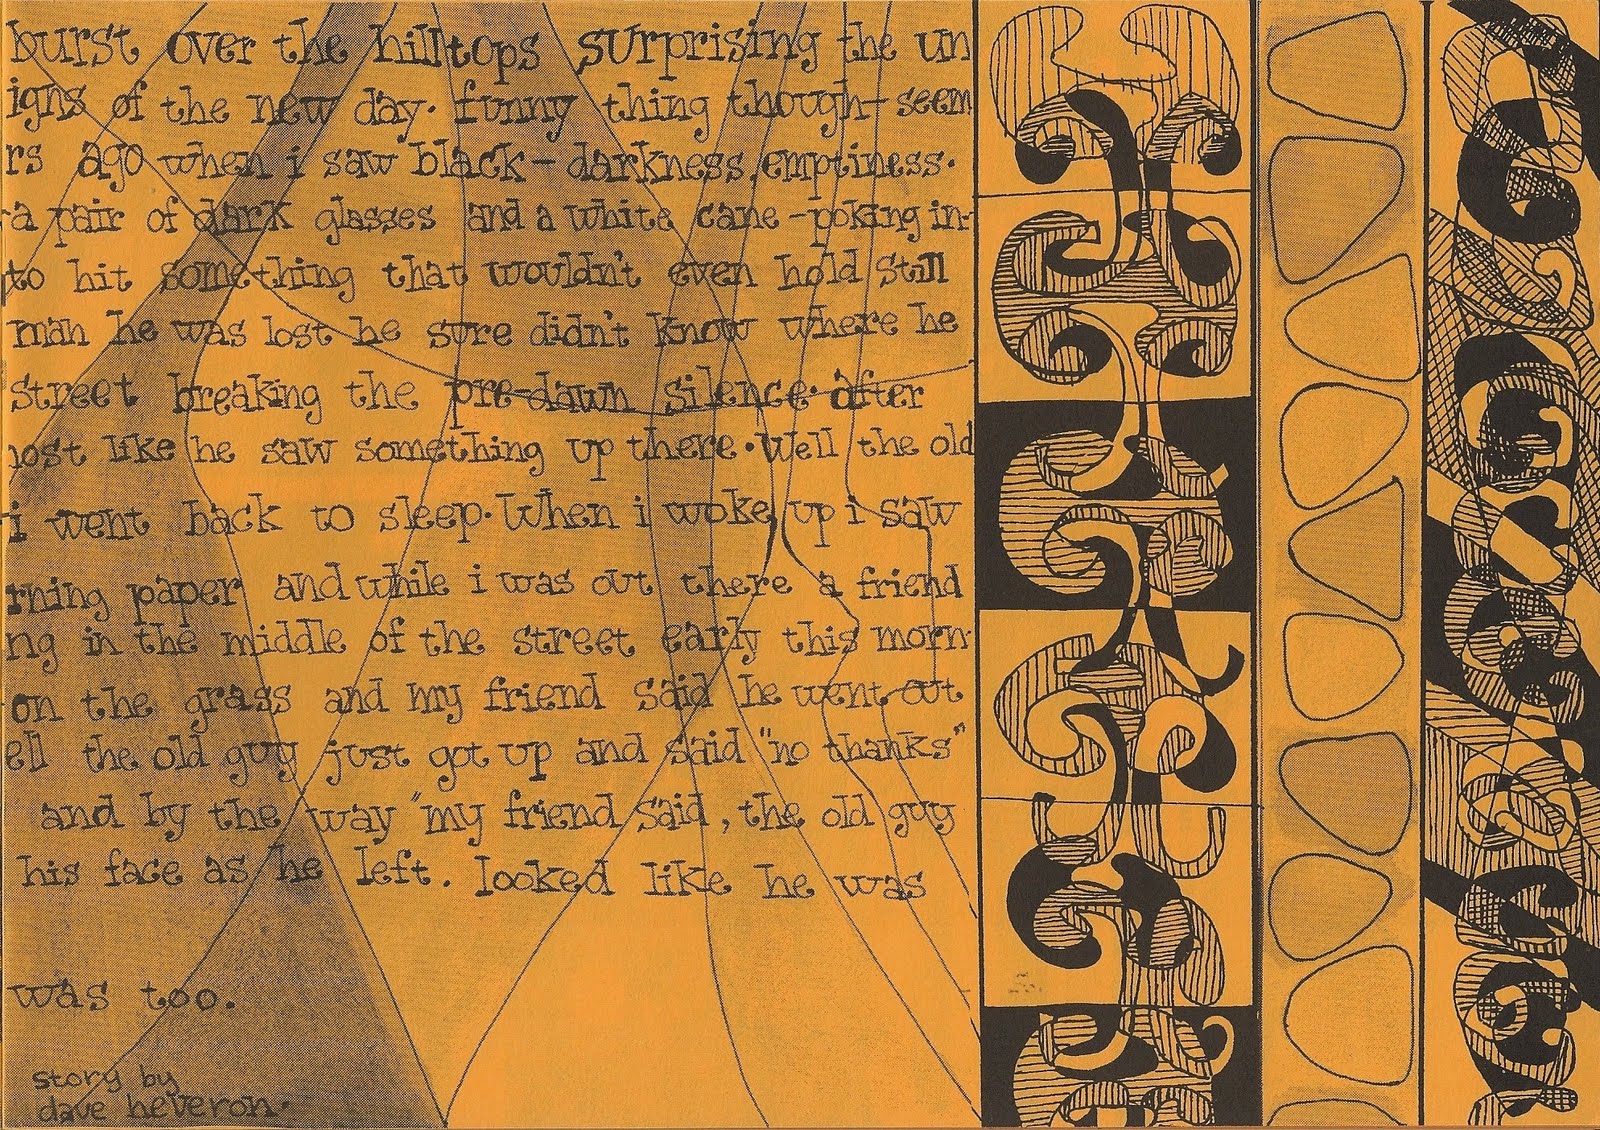 burst over the hilltops surprising the un
igns of the new day. funny thing though-seem
rs ago when i saw black - darkness, emptiness.
a pair of dark glasses and a white cane -poking in-
to hit something that wouldn't even hold still
man he was lost he sure didn't know where he
street breaking the pre-dawn silence. after
nost like he saw something up there. Well the old
i went back to sleep. When i woke up i saw
rning paper and while i was out there a friend
ng in the middle of the street early this morn
on the grass and my friend said he went out
ell the old guy just got up and said "no thanks"
and by the way "my friend said, the old guy
his face as he left. looked like he was
was too.
story by
dave heveron.